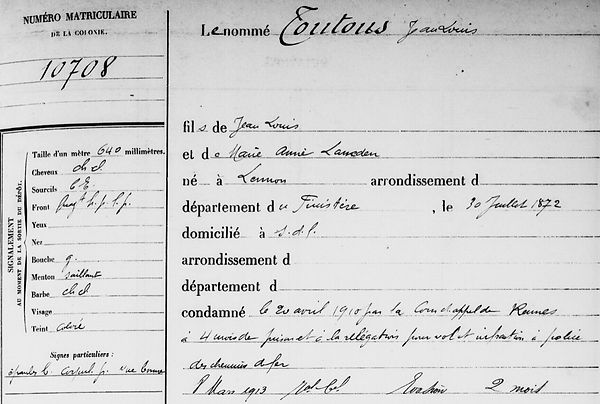 NUMÉRO MATRICULAIRE
DE LA COLONIE.
10708
SIGNALEMENT
AU MOMENT DE LA SORTIE DU DÉPÔT:
Taille d'un mètre 640 millimètres.
Cheveux ch d.
Sourcils
Front
Yeux
Nez
Bouche g.
Menton saillant
Barbe ch d
Visage
Teint coloré
Signes particuliers :
Le nommé Toutous Jean Louis
fils de Jean Louis
et de Marie Anne
né à Lennon arrondissement d
département du Finistère, le 30 Juillet 1872
domicilié à s.d.f.
arrondissement d
département d
condamné le 20 avril 1910 par la Cour d'appel de Rennes
à 4 mois de prison et à la rélégation pour vol et infraction à police
des chemins de fer
8 Mars 1913 Evasion 2 mois